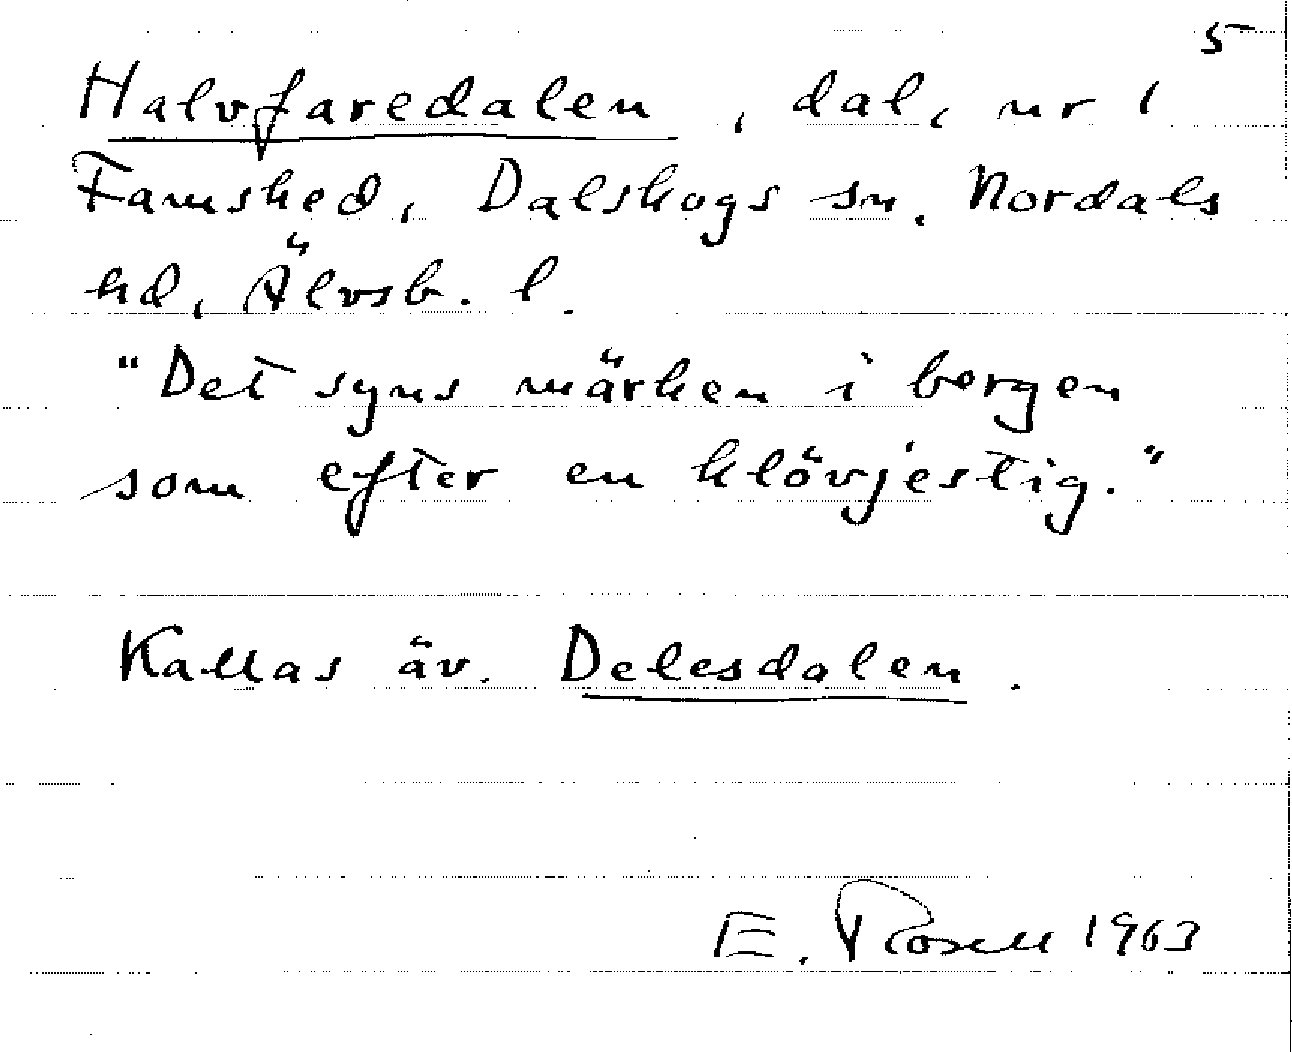 5
Halvfaredalen, dal, nr 1
Famshed, Dalskogs sn. Nordals
hd, Älvsb. l.
"Det syns märken i bergen
som efter en klövjestig."
Kallas äv. Delesdalen.
E. Rosell 1963